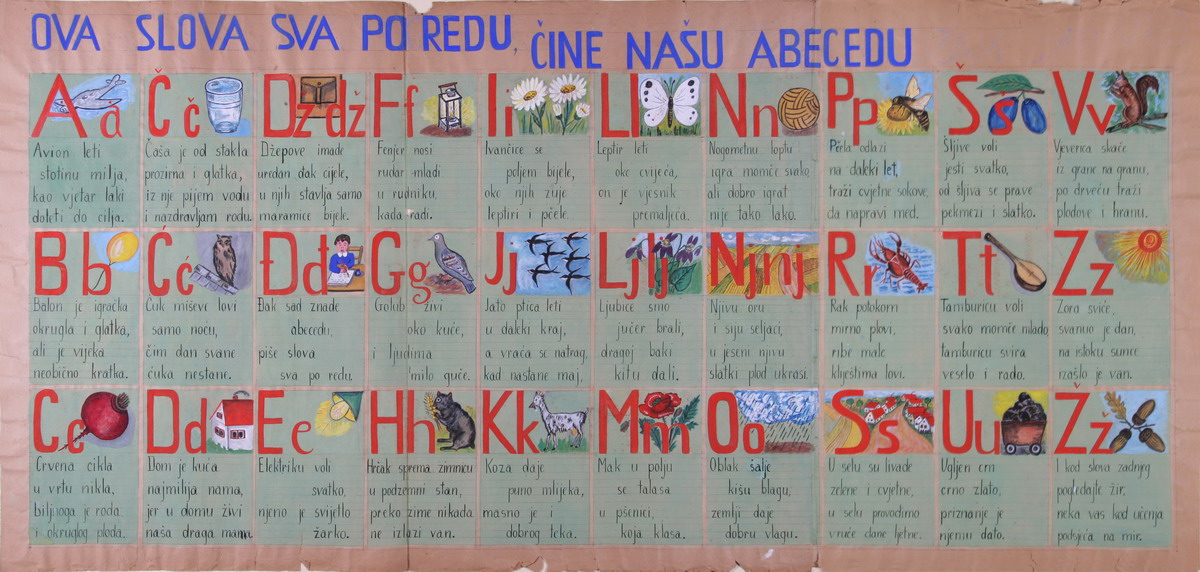 OVA SLOVA SVA PO REDU, ČINE NAŠU ABECEDU
A a
Avion leti
stotinu milja,
kao vjetar laki
doleti do cilja.
B b
Balon je igračka
okrugla i glatka,
ali je vijeka
neobično kratka.
C c
Crvena cikla
u vrtu nikla,
biljnoga je roda
i okruglog ploda.
Č č
Čaša je od stakla
prozirna i glatka,
iz nje pijem vodu
i nazdravljam rodu.
Ć ć
Ćuk miševe lovi
samo noću,
čim dan svane
ćuka nestane.
D d
Dom je kuća
najmilija nama,
jer u domu živi
naša draga mama.
Dž dž
Džepove imade
uredan đak cijele,
u njih stavlja samo
maramice bijele.
Đ đ
Đak sad znade
abecedu,
piše slova
sva po redu.
E e
Elektriku voli
svatko,
njeno je svijetlo
žarko.
F f
Fenjer nosi
rudar mladi
u rudniku,
kada radi.
G g
Golub živi
oko kuće,
i ljudima
milo guče.
H h
Hrčak sprema zimnicu
u podzemni stan,
preko zime nikada
ne izlazi van.
I i
Ivančice se
poljem bijele,
oko njih zuje
leptiri i pčele.
J j
Jato ptica leti
u daleki kraj,
a vraća se natrag,
kad nastane maj.
K k
Koza daje
puno mlijeka,
masno je i
dobrog teka.
L l
Leptir leti
oko cvijeća,
on je vjesnik
premaljeća.
Lj lj
Ljubice smo
jučer brali,
dragoj baki
kitu dali.
M m
Mak u polju
se talasa
u pšenici,
koja klasa.
N n
Nogometnu loptu
igra momče svako,
ali dobro igrat
nije tako lako.
Nj nj
Njivu oru
i siju seljaci,
u jeseni njivu
slatki plod ukrasi.
O o
Oblak šalje
kišu blagu,
zemlji daje
dobru vlagu.
P p
Pčela odlazi
na daleki let,
traži cvjetne sokove,
da napravi med.
R r
Rak potokom
mirno plovi,
ribe male
kliještima lovi.
S s
U selu su livade
zelene i cvjetne,
u selu provodimo
vruće dane ljetne.
Š š
Šljive voli
jesti svatko,
od šljiva se prave
pekmezi i slatko.
T t
Tamburicu voli
svako momče mlado,
tamburicu svira
veselo i rado.
U u
Ugljen crn
crno zlato,
priznanje je
njemu dato.
V v
Vjeverica skače
iz grane na granu,
po drveću traži
plodove i hranu.
Z z
Zora sviće,
svanuo je dan,
na istoku sunce
izašlo je van.
Ž ž
I kod slova zadnjeg
pogledajte žir,
neka vas kod učenja
podsjeća na mir.